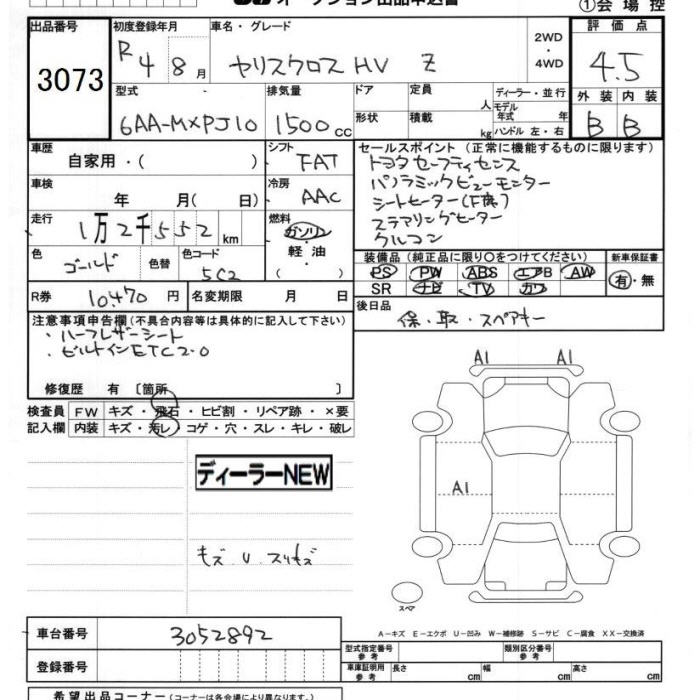 オークション出品申込書
①会場控
出品番号 初度登録年月 車名・グレード 2WD・4WD 評価点
3073 R4 8月 ヤリスクロス HV Z 4.5
型式 排気量 ドア 定員 人 ディーラー・並行 外装 内装
6AA-MXPJ10 1500cc 形状 積載 kg モデル年式 年 ハンドル 左・右 B B
車歴 シフト セールスポイント(正常に機能するものに限ります)
自家用・( ) FAT トヨタセーフティセンス
車検 冷房 パノラミックビューモニター
年 月( 日) AAC シートヒーター(F席)
走行 燃料 ステアリングヒーター
1万2千552km ガソリン クルコン
色 色替 色コード 軽油・ 装備品(純正品に限り○をつけてください) 新車保証書
ゴールド 5C2 ( ) PS PW ABS エアB AW 有・無
R券 10,470円 名変期限 月 日 SR ナビ TV カワ
後日品
注意事項申告欄(不具合内容等は具体的に記入して下さい) 保・取・スペアキー
・ハーフレザーシート
・ビルトインETC2.0
修復歴 有 〔箇所 〕
検査員 FW キズ・飛石・ヒビ割・リペア跡・×要
記入欄 内装 キズ・汚レ・コゲ・穴・スレ・キレ・破レ
ディーラーNEW
キズ U スリキズ
A1 A1
A1
スペア
A-キズ E-エクボ U-凹み W-補修跡 S-サビ C-腐食 XX-交換済
車台番号 3052892
型式指定番号 参考 類別区分番号 参考
登録番号 車庫証明用 参考 長さ cm 幅 cm 高さ cm
希望出品コーナー(コーナーは各会場により異なります。)